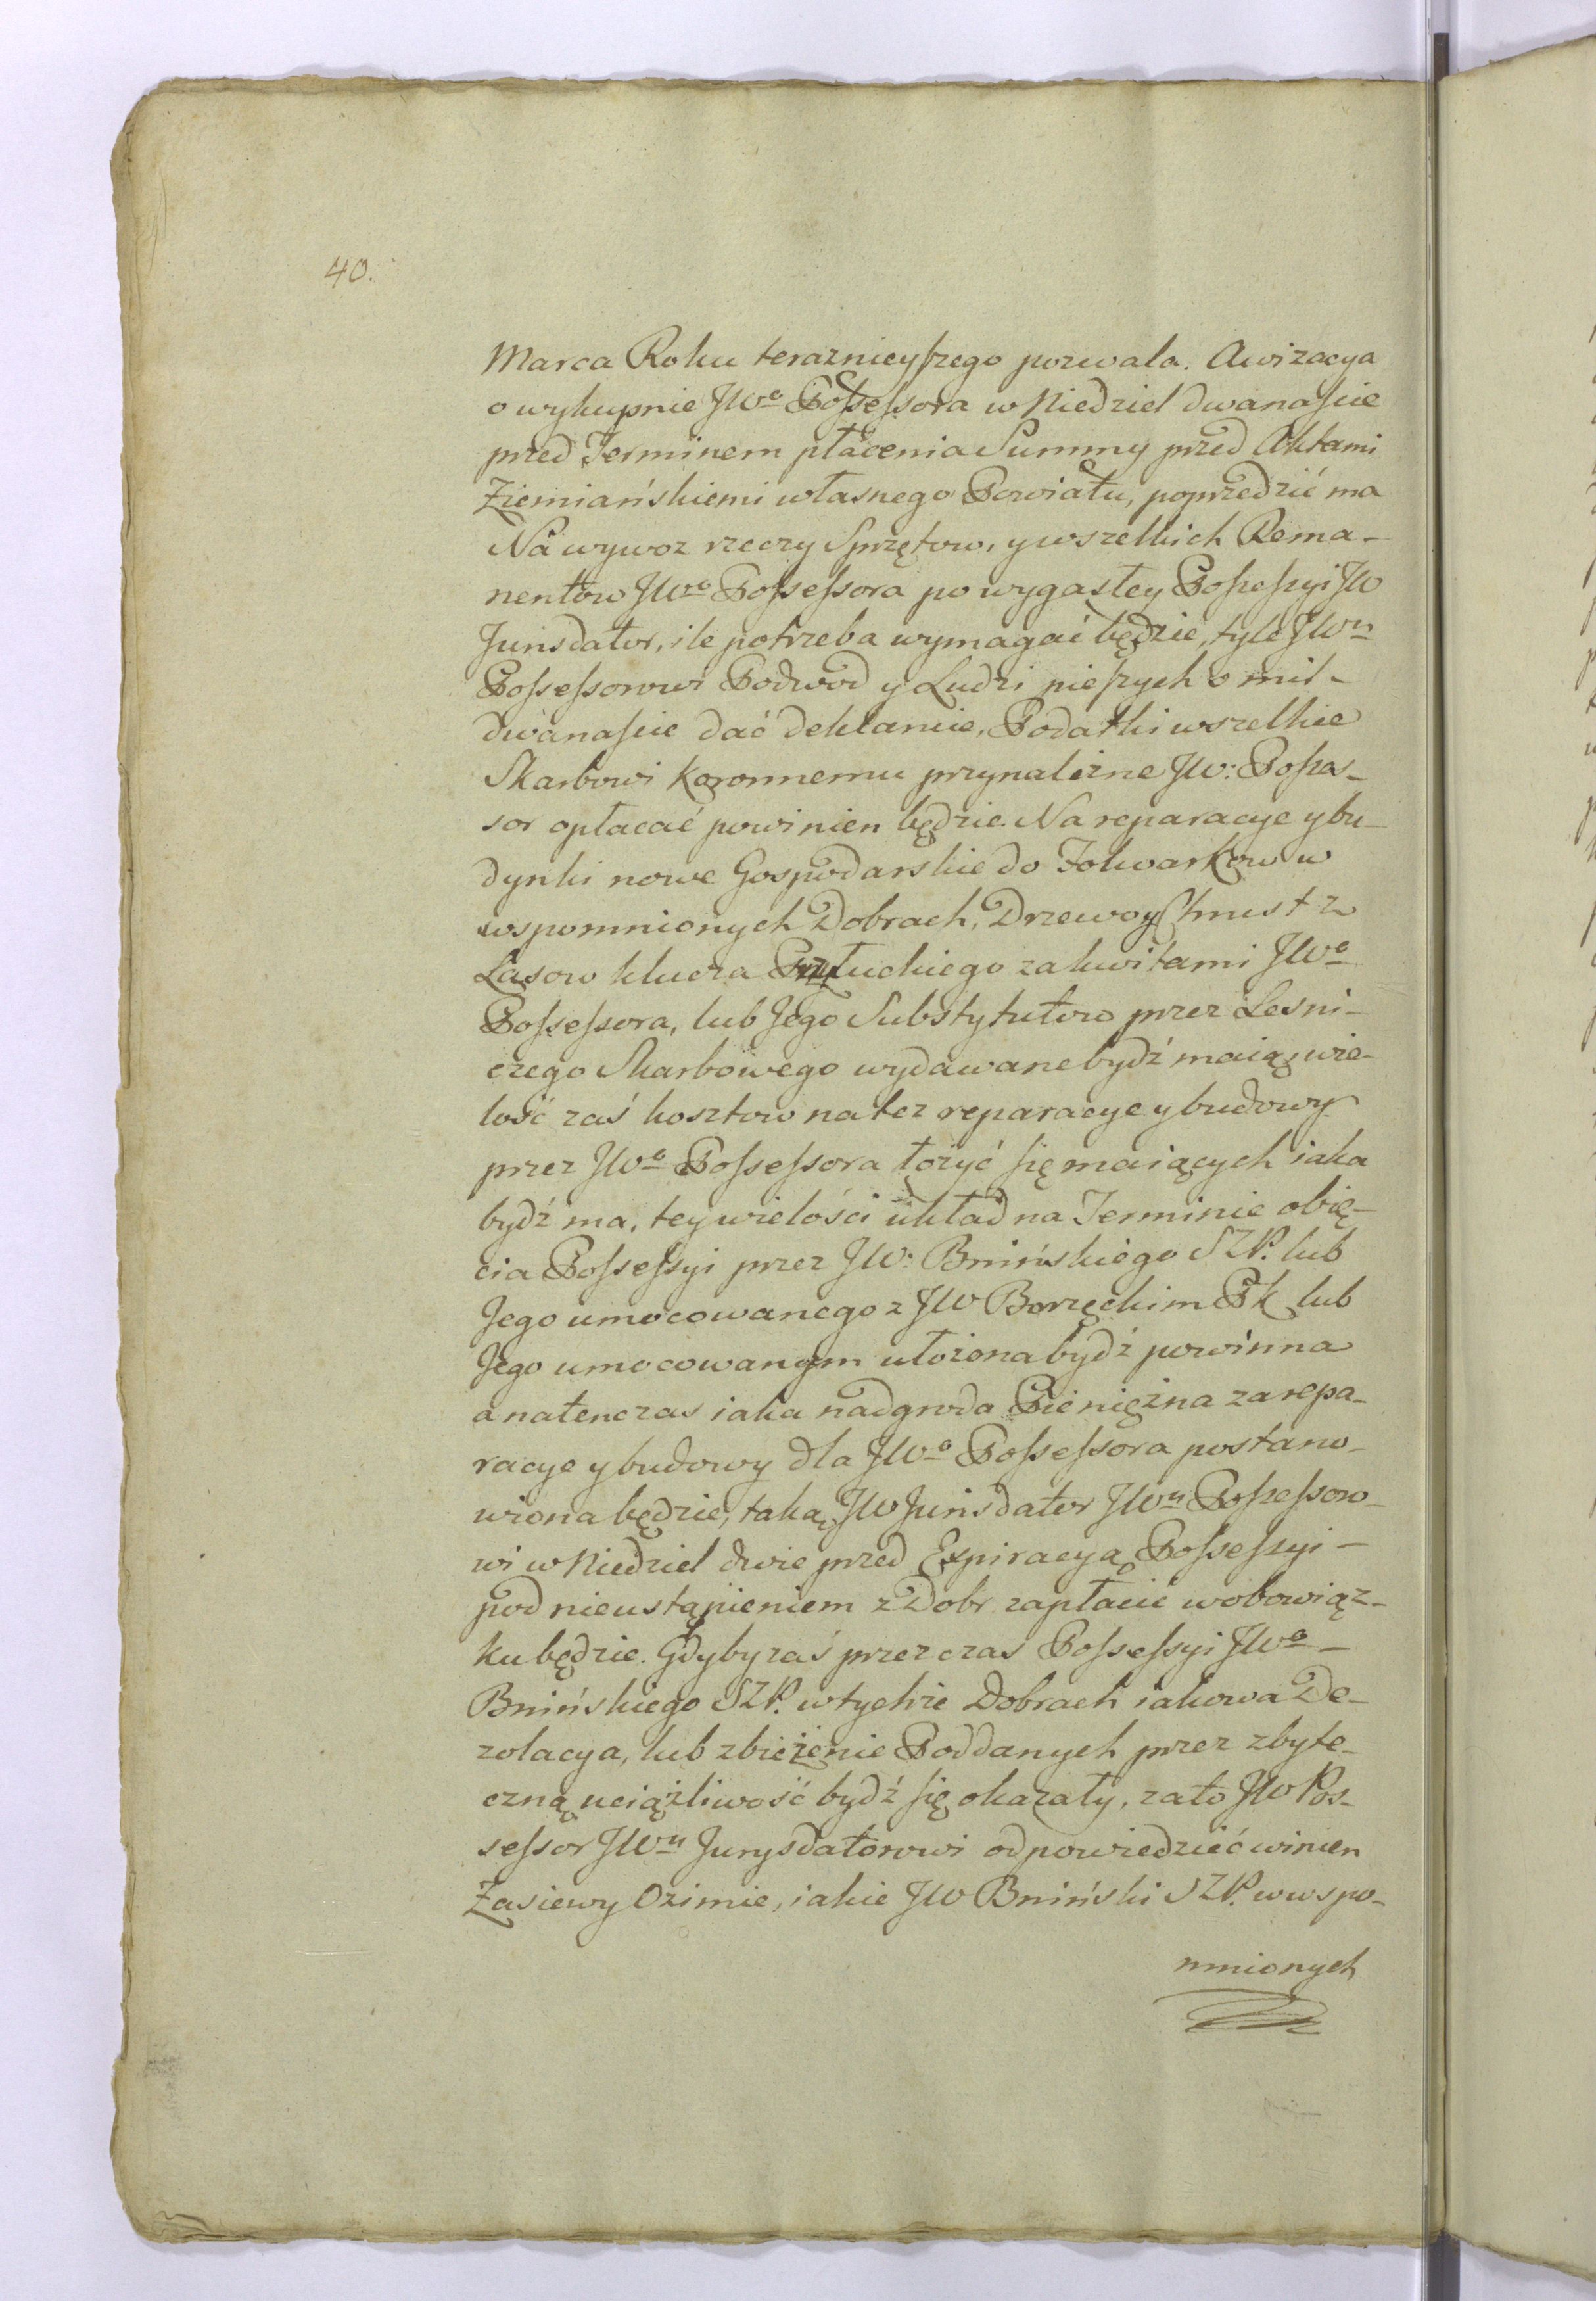 40.
Marca Roku teraznieyſzego pozwala. Awizacya
o wykupnie JWº Poſseſsora w Niedziel dwanaſcie
przed Terminem płacenia Summy przed Aktami
Ziemiańskiemi własnego Powiatu, poprzedzić ma
Na wywoz rzeczy Sprzętow, y wszelkich Rema-
nentow JWº Poſseſsora po wygasłey Poſseſsyi JW
Jurisdator, ile potrzeba wymagać będzie, tyle JWu
Poſseſsorowi Podwod y Ludzi pieſzych o mil-
dwanaſcie dać deklaruie, Podatki wszelkie
Skarbowi Koronnemu przynależne JW: Poſses-
sor opłacać powinien będzie. Na reparacye y bu-
dynki nowe Gospodarskie do Folwarkow w
wspomnionych Dobrach, Drzewo y Chrust z
Lasow klucza Przyłuckiego za kwitami JWº
Poſseſsora, lub Jego Substytutow przez Lesni-
czego Skarbowego wydawane bydź maią, wie-
lość zaś kosztow na też reparacye y budowy
przez JWº Poſseſsora łożyć ſię maiących iaka
bydź ma, tey wielości układ na Terminie obię-
cia Poſseſsyi przez JW: Bnińskiego SZP. lub
Jego umocowanego z JW Borzęckim Pk lub
Jego umocowanym ułożona bydź powinna
a natenczas iaka nadgroda Pieniężna za repa-
racye y budowy dla JWº Poſseſsora postano-
wiona będzie, taką JW Jurisdator JWu Poſseſsoro-
wi w Niedziel dwie przed Expiracyą Poſseſsyi -
pod nieustąpieniem z Dobr zapłacić w obowiąz-
ku będzie. Gdyby zaś przez czas Poſseſsyi JWº -
Bnińskiego SZP. w tychże Dobrach iakowa De-
zolacya, lub zbieżenie Poddanych przez zbyte-
czną uciążliwość bydź ſię okazały, za to JW Pos-
seſsor JWu Jurysdatorowi odpowiedzieć winien
Zasiewy Ozimie, iakie JW Bniński SZP. w wspo-
mnionych